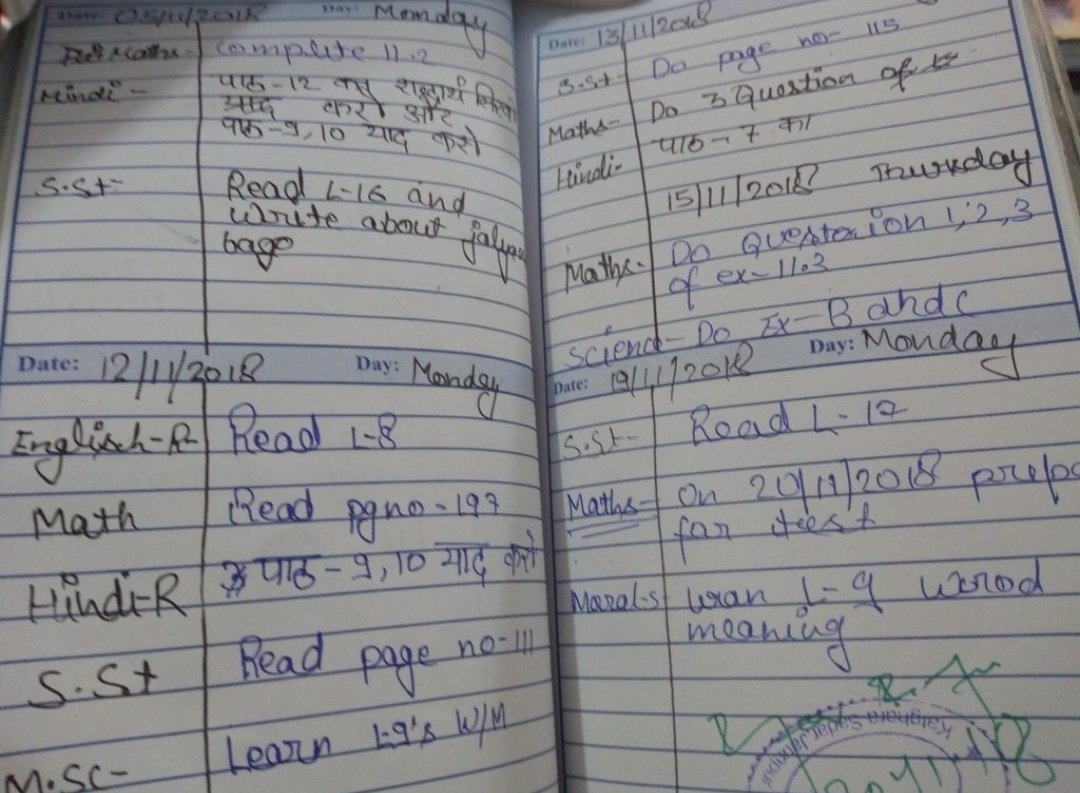 Date: 05/11/2018 Day: Monday
Maths- Complete 11.2
Hindi- पाठ-12 का शब्दार्थ
याद करो और
पाठ-9,10 याद करो
S.St- Read L-16 and
Write about
bage
Date: 12/11/2018 Day: Monday
English-R Read L-8
Math Read pg no-197
Hindi-R पाठ-9,10 याद करो
S.St Read page no-111
M.SC- Learn L-9's W/M
Date: 13/11/2018
S.St- Do page no- 115
Maths- Do 3 Question of
Hindi- पाठ-7 का
15/11/2018 Thursday
Maths- Do Question 1,2,3
of ex-11.3
Sciend- Do Ex-B and C
Date: 19/11/2018 Day: Monday
S.St- Read L-17
Maths- On 20/11/2018
far test
Maral-S L-9 word
meaning
Karghara Sadar Jahopur